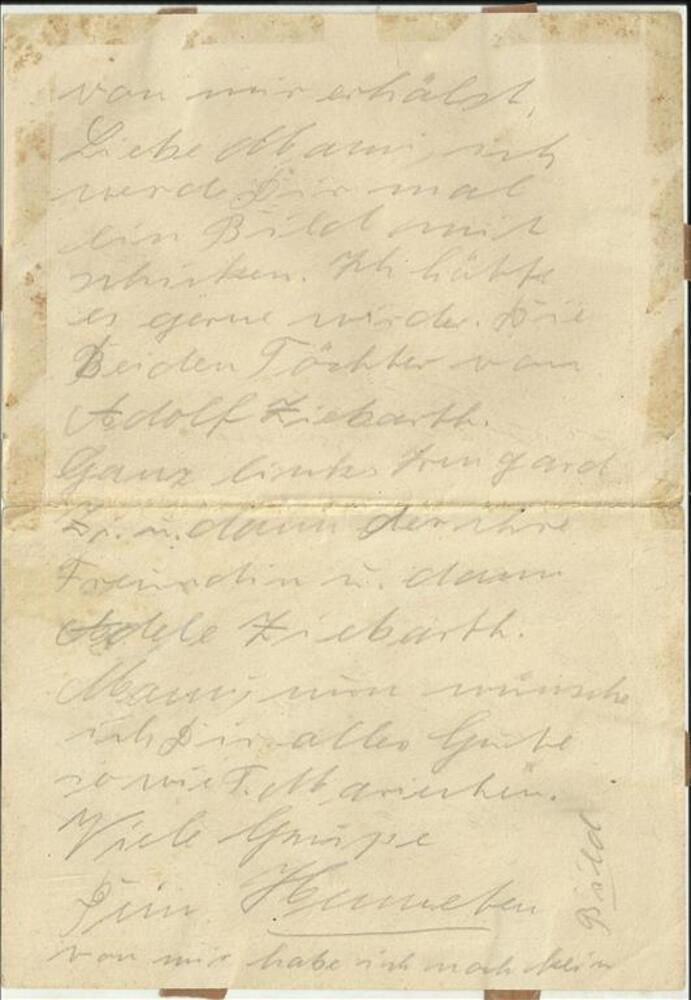 von mir erhälst,
Liebe Mami, ich
werde Dir mal
ein Bild mit
schicken. Ich hätte
es gerne wieder. Die
Beiden Töchter von
Adolf Ziebarth.
Ganz links Irmgard
Zi. u. dann der ihre
Freundin u. dann
Adele Ziebarth.
Mami, nun wünsche
ich Dir alles Gute
sowie T. Mariechen.
Viele Grüße
Dein
von mir habe ich noch kein
Bild